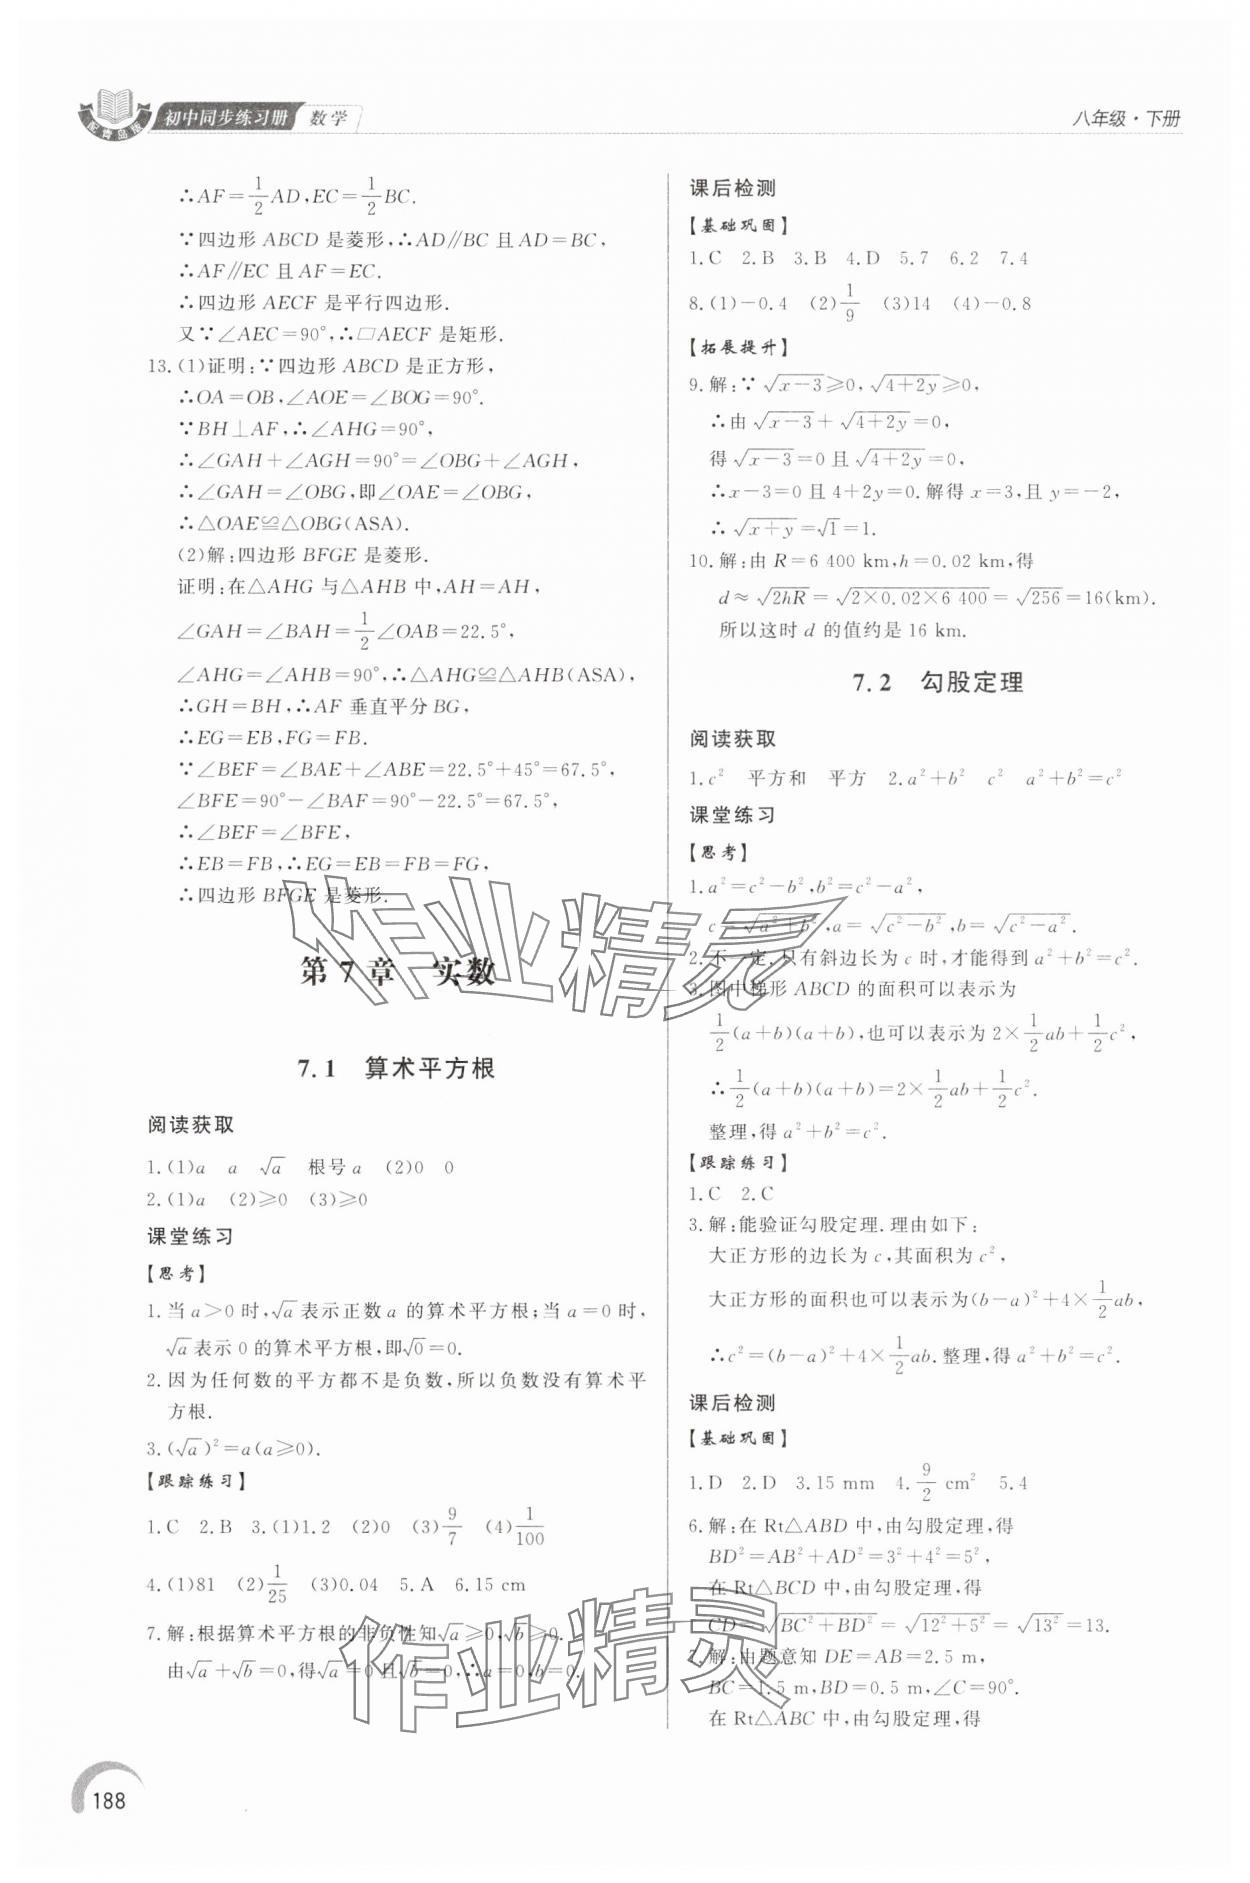 配青岛版
初中同步练习册 数学
八年级·下册
∴AF=1/2AD,EC=1/2BC.
∵四边形 ABCD 是菱形,∴AD∥BC 且 AD=BC,
∴AF∥EC 且 AF=EC.
∴四边形 AECF 是平行四边形.
又∵∠AEC=90°,∴□AECF 是矩形.
13.(1)证明:∵四边形 ABCD 是正方形,
∴OA=OB,∠AOE=∠BOG=90°.
∵BH⊥AF,∴∠AHG=90°,
∴∠GAH+∠AGH=90°=∠OBG+∠AGH,
∴∠GAH=∠OBG,即∠OAE=∠OBG,
∴△OAE≌△OBG(ASA).
(2)解:四边形 BFGE 是菱形.
证明:在△AHG 与△AHB 中,AH=AH,
∠GAH=∠BAH=1/2∠OAB=22.5°,
∠AHG=∠AHB=90°,∴△AHG≌△AHB(ASA),
∴GH=BH,∴AF 垂直平分 BG,
∴EG=EB,FG=FB.
∵∠BEF=∠BAE+∠ABE=22.5°+45°=67.5°,
∠BFE=90°-∠BAF=90°-22.5°=67.5°,
∴∠BEF=∠BFE,
∴EB=FB,∴EG=EB=FB=FG,
∴四边形 BFGE 是菱形.
第 7 章 实数
7.1 算术平方根
阅读获取
1.(1)a a √a 根号 a (2)0 0
2.(1)a (2)≥0 (3)≥0
课堂练习
【思考】
1.当 a>0 时,√a表示正数 a 的算术平方根;当 a=0 时,
√a表示 0 的算术平方根,即√0=0.
2.因为任何数的平方都不是负数,所以负数没有算术平
方根.
3.(√a)²=a(a≥0).
【跟踪练习】
1.C 2.B 3.(1)1.2 (2)0 (3)9/7 (4)1/100
4.(1)81 (2)1/25 (3)0.04 5.A 6.15 cm
7.解:根据算术平方根的非负性知√a≥0,√b≥0.
由√a+√b=0,得√a=0 且√b=0.∴a=0,b=0.
课后检测
【基础巩固】
1.C 2.B 3.B 4.D 5.7 6.2 7.4
8.(1)-0.4 (2)1/9 (3)14 (4)-0.8
【拓展提升】
9.解:∵√(x-3)≥0,√(4+2y)≥0,
∴由√(x-3)+√(4+2y)=0,
得√(x-3)=0 且√(4+2y)=0,
∴x-3=0 且 4+2y=0.解得 x=3,且 y=-2,
∴√(x+y)=√1=1.
10.解:由 R=6 400 km,h=0.02 km,得
d≈√(2hR)=√(2×0.02×6 400)=√256=16(km).
所以这时 d 的值约是 16 km.
7.2 勾股定理
阅读获取
1.c² 平方和 平方 2.a²+b² c² a²+b²=c²
课堂练习
【思考】
1.a²=c²-b²,b²=c²-a²,
c=√(a²+b²),a=√(c²-b²),b=√(c²-a²).
2.不一定,只有斜边长为 c 时,才能得到 a²+b²=c².
3.图中梯形 ABCD 的面积可以表示为
1/2(a+b)(a+b),也可以表示为 2×1/2ab+1/2c²,
∴1/2(a+b)(a+b)=2×1/2ab+1/2c².
整理,得 a²+b²=c².
【跟踪练习】
1.C 2.C
3.解:能验证勾股定理.理由如下:
大正方形的边长为 c,其面积为 c²,
大正方形的面积也可以表示为(b-a)²+4×1/2ab,
∴c²=(b-a)²+4×1/2ab.整理,得 a²+b²=c².
课后检测
【基础巩固】
1.D 2.D 3.15 mm 4.9/2 cm² 5.4
6.解:在 Rt△ABD 中,由勾股定理,得
BD²=AB²+AD²=3²+4²=5²,
在 Rt△BCD 中,由勾股定理,得
CD=√(BC²+BD²)=√(12²+5²)=√(13²)=13.
7.解:由题意知 DE=AB=2.5 m,
BC=1.5 m,BD=0.5 m,∠C=90°.
在 Rt△ABC 中,由勾股定理,得
188
作业精灵
作业精灵